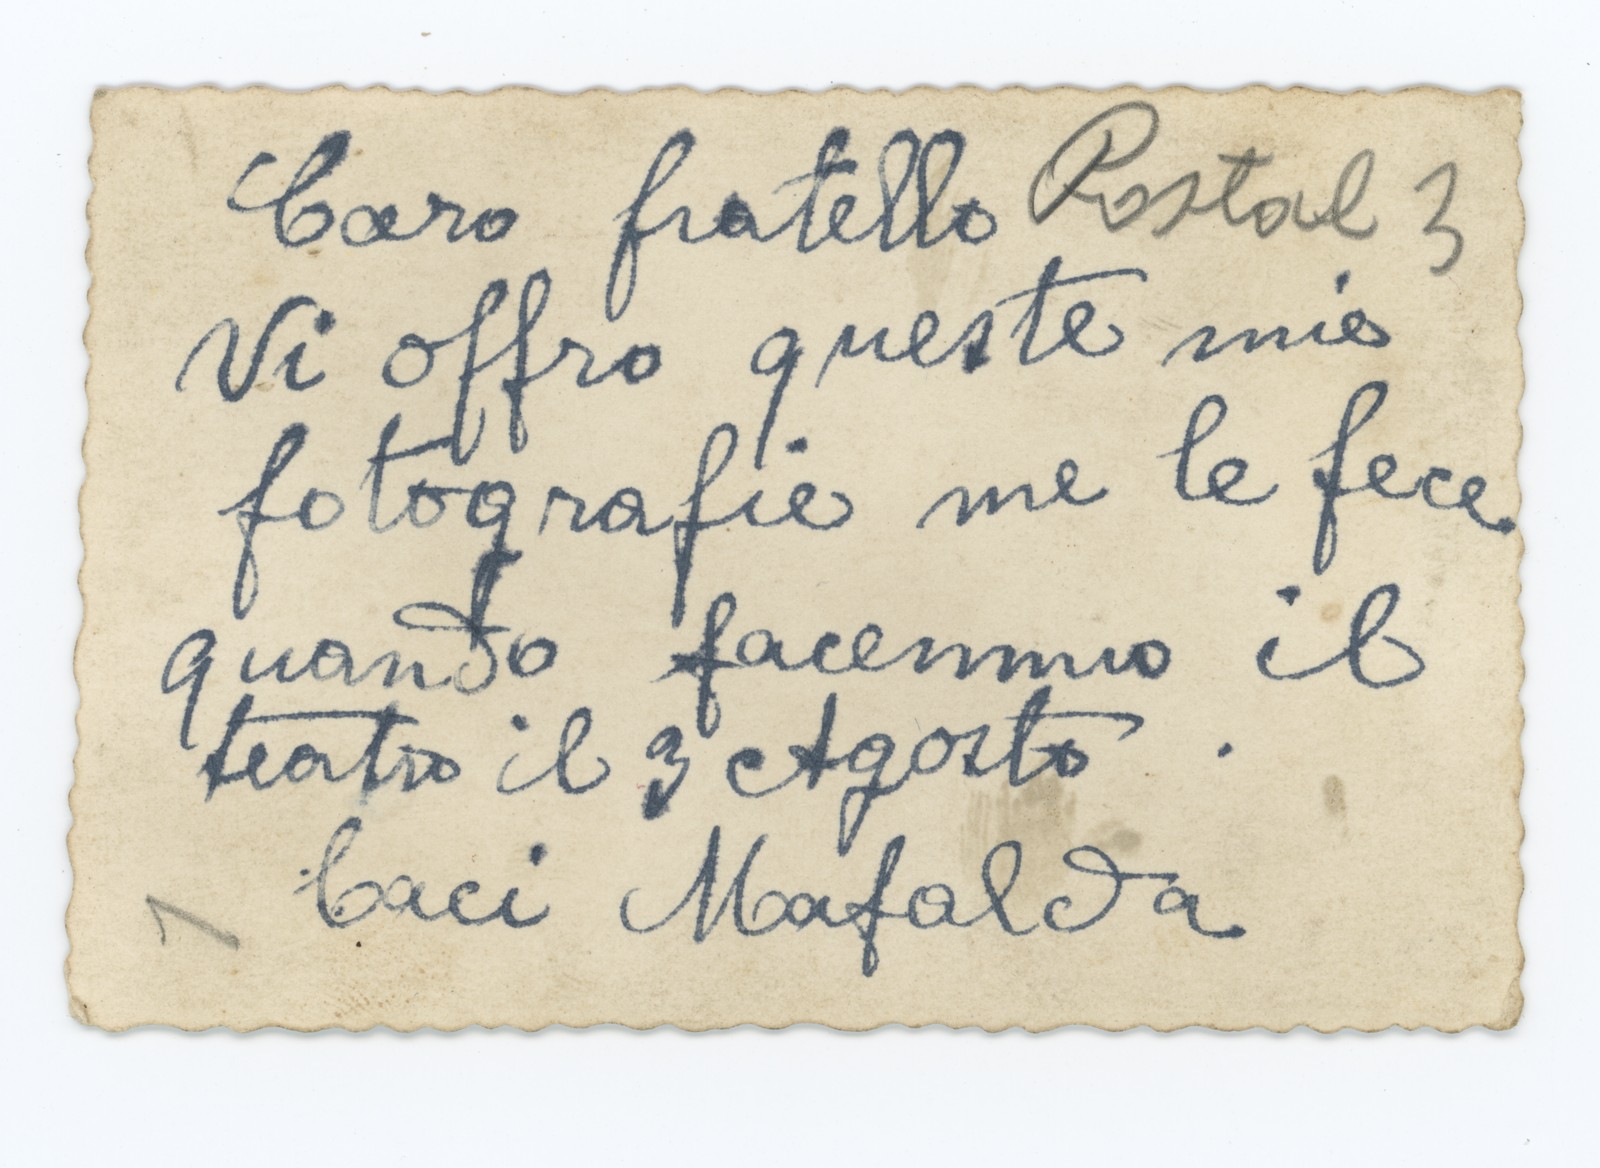 Caro fratello Postal 3
Vi offro queste mie
fotografie me le fece
quando facemmo il
teatro il 3 Agosto.
baci Mafalda